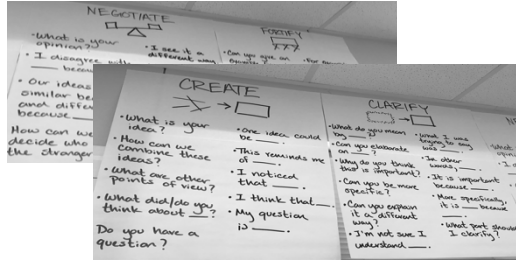 NEGOTIATE
• What is your
opinion?
• I disagree
becau
• Our ideas
similar be
and diffe
because
How can we
decide who
the stronger
• I see it a
different way
FORTIFY
• Can you give an
CREATE
• What is your
idea?
• How can we
combine these
ideas?
• What are other
points of view?
• What did/do you
think about y?
Do you have a
question?
• One idea could
be ___.
• This reminds me
of ___.
• I noticed
that ___.
• I think that ___.
• My question
is ___.
CLARIFY
• What do you mean
by ___?
• Can you elaborate
on ___?
• Why do you think
this is important?
• Can you be more
specific?
• Can you explain
it a different
way?
• I'm not sure I
understand ___.
• What I was
trying to say
was
• In other
words,
• It is important
because ___.
• More specifically,
it is ___ because
___.
• What part should
I clarify?